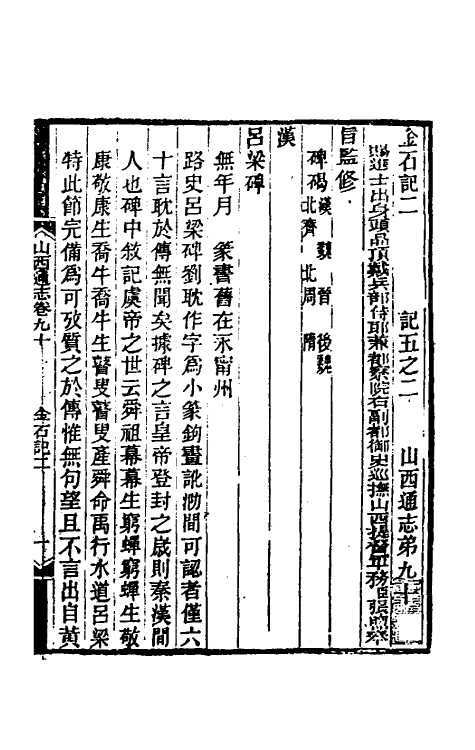 金石記二　記五之二　山西通志第九十
賜進士出身頭品頂戴兵部侍郎兼都察院右副都御史巡撫山西提督軍務臣張煦奉
旨監修
碑碣漢　魏　晉　後魏
北齊　北周　隋
漢
呂梁碑
無年月　篆書舊在永甯州
路史呂梁碑劉耽作字為小篆鉤畫訛泐間可認者僅六
十言耽於傳無聞矣據碑之言皇帝登封之歲則秦漢間
人也碑中敘記虞帝之世云舜祖幕幕生窮蟬窮蟬生敬
康敬康生喬牛喬牛生瞽叟瞽叟產舜命禹行水道呂梁
特此節完備為可攷質之於傳惟無句望且不言出自黃
山西通志卷九十　金石記二　一